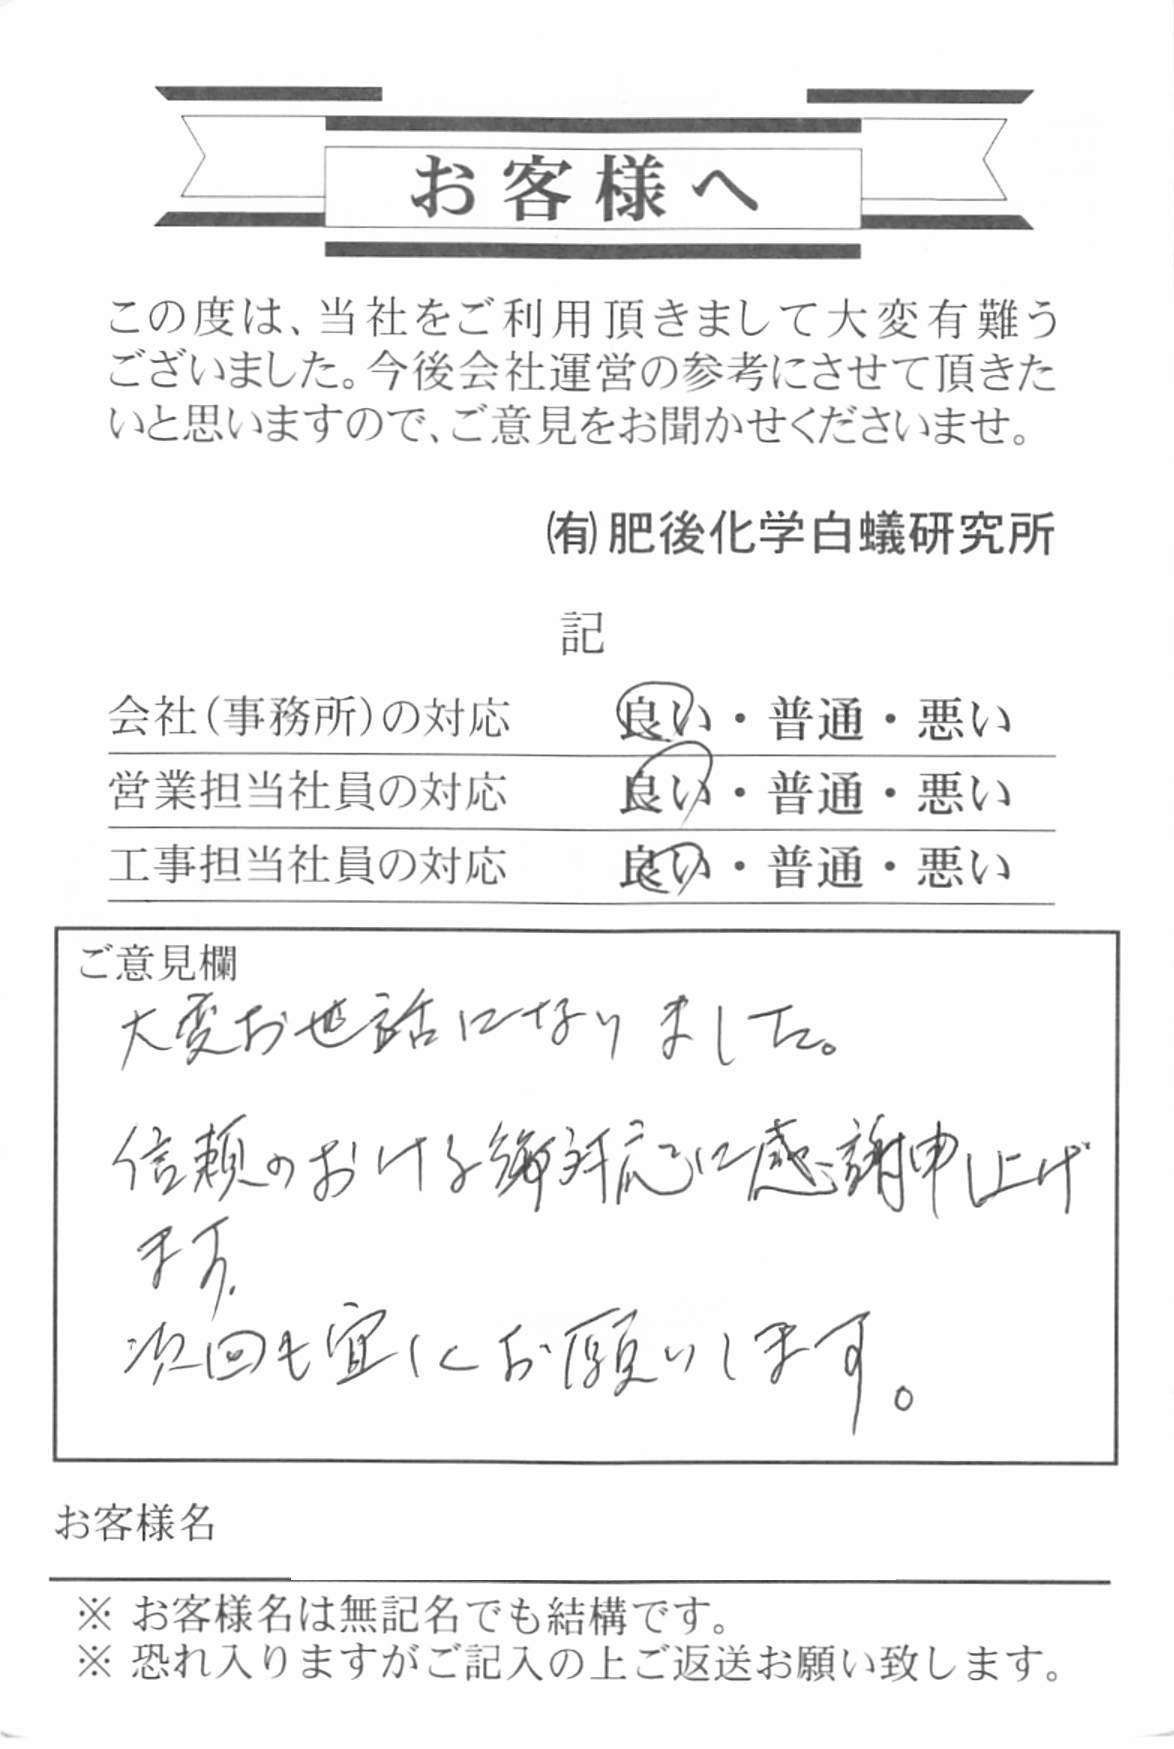 お客様へ
この度は、当社をご利用頂きまして大変有難う
ございました。今後会社運営の参考にさせて頂きた
いと思いますので、ご意見をお聞かせくださいませ。
㈲肥後化学白蟻研究所
記
会社(事務所)の対応 良い・普通・悪い
営業担当社員の対応 良い・普通・悪い
工事担当社員の対応 良い・普通・悪い
ご意見欄
大変お世話になりました。
信頼のおける御対応に感謝申し上げ
ます.
次回も宜にお願いします。
お客様名
※ お客様名は無記名でも結構です。
※ 恐れ入りますがご記入の上ご返送お願い致します。